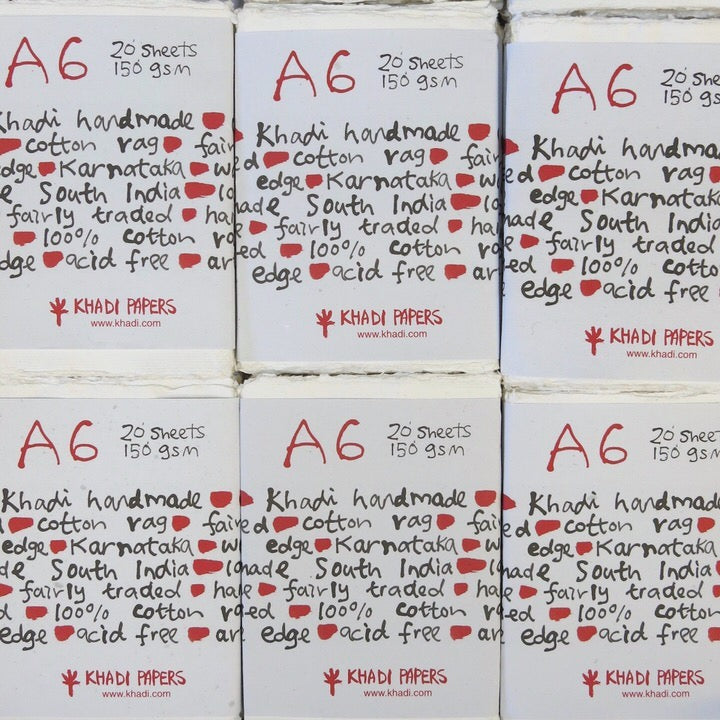 A6 20 sheets
150 gsm
Khadi handmade
cotton rag fair
edge Karnataka w
e South India lo
fairly traded ha
100% cotton ra
dge acid free ar
KHADI PAPERS
www.khadi.com
A6 20 sheets
150 gsm
Khadi handmade
d cotton rag fair
edge Karnataka w
made South India lo
fairly traded ha
ed 100% cotton ra
edge acid free ar
KHADI PAPERS
www.khadi.com
A6 20 she
150 gs
Khadi handma
ed cotton rag
edge Karnataka
made South India
fairly traded
ed 100% cotto
edge acid free
KHADI PAPERS
www.khadi.com
A6 20 sheets
150 gsm
Khadi handmade
cotton rag fair
edge Karnataka w
de South India lo
fairly traded ha
d 100% cotton ra
edge acid free ar
KHADI PAPERS
www.khadi.com
A6 20 sheets
150 gsm
Khadi handmade
ed cotton rag fair
edge Karnataka w
made South India lo
fairly traded ha
ed 100% cotton ra
edge acid free ar
KHADI PAPERS
www.khadi.com
A6 20 shee
150 gsm
Khadi handma
ed cotton rag
edge Karnataka
made South India
fairly traded
ed 100% cotton
edge acid free
KHADI PAPERS
www.khadi.com